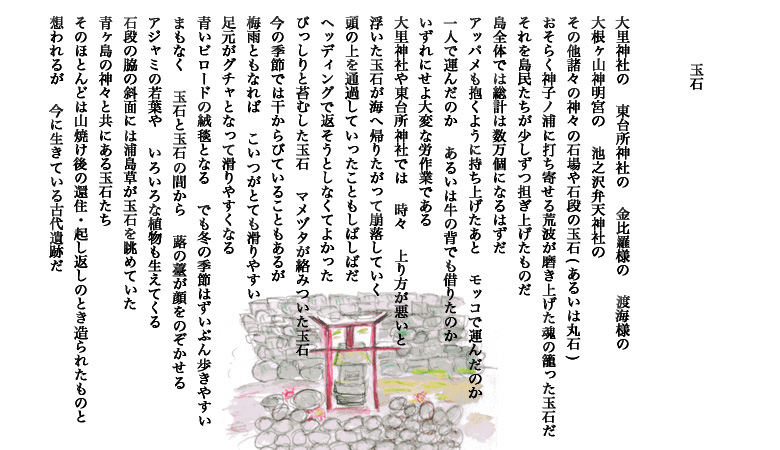 玉石
大里神社の　東台所神社の　金比羅様の　渡海様の
大根ヶ山神明宮の　池之沢弁天神社の
その他諸々の神々の石場や石段の玉石(あるいは丸石)
おそらく神子ノ浦に打ち寄せる荒波が磨き上げた魂の籠った玉石だ
それを島民たちが少しずつ担ぎ上げたものだ
島全体では総計は数万個になるはずだ
アッパメも抱くように持ち上げたあと　モッコで運んだのか
一人で運んだのか　あるいは牛の背でも借りたのか
いずれにせよ大変な労作業である
大里神社や東台所神社では　時々　上り方が悪いと
浮いた玉石が海へ帰りたがって崩落していく
頭の上を通過していったこともしばしばだ
ヘッディングで返そうとしなくてよかった
びっしりと苔むした玉石　マメヅタが絡みついた玉石
今の季節では干からびていることもあるが
梅雨ともなれば　こいつがとても滑りやすい
足元がグチャとなって滑りやすくなる
青いビロードの絨毯となる　でも冬の季節はずいぶん歩きやすい
まもなく　玉石と玉石の間から　蕗の薹が顔をのぞかせる
アジャミの若葉や　いろいろな植物も生えてくる
石段の脇の斜面には浦島草が玉石を眺めていた
青ヶ島の神々と共にある玉石たち
そのほとんどは山焼け後の還住・起し返しのとき造られたものと
想われるが　今に生きている古代遺跡だ